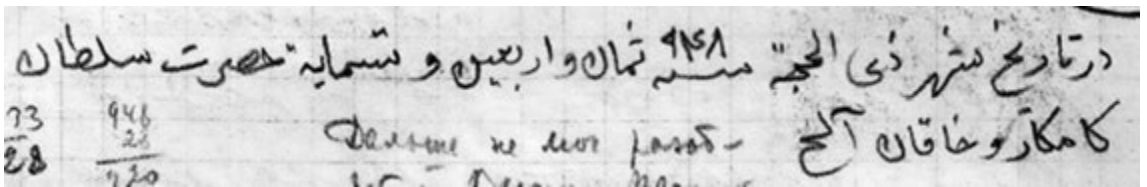 در تاریخ شهر ذی الحجّة سنه ۹۴۸ ثمان واربعین و تسمایة حضرت سلطان
کامکار و خاقان آلخ Дальше не мог разоб-
33 948
28 28
920